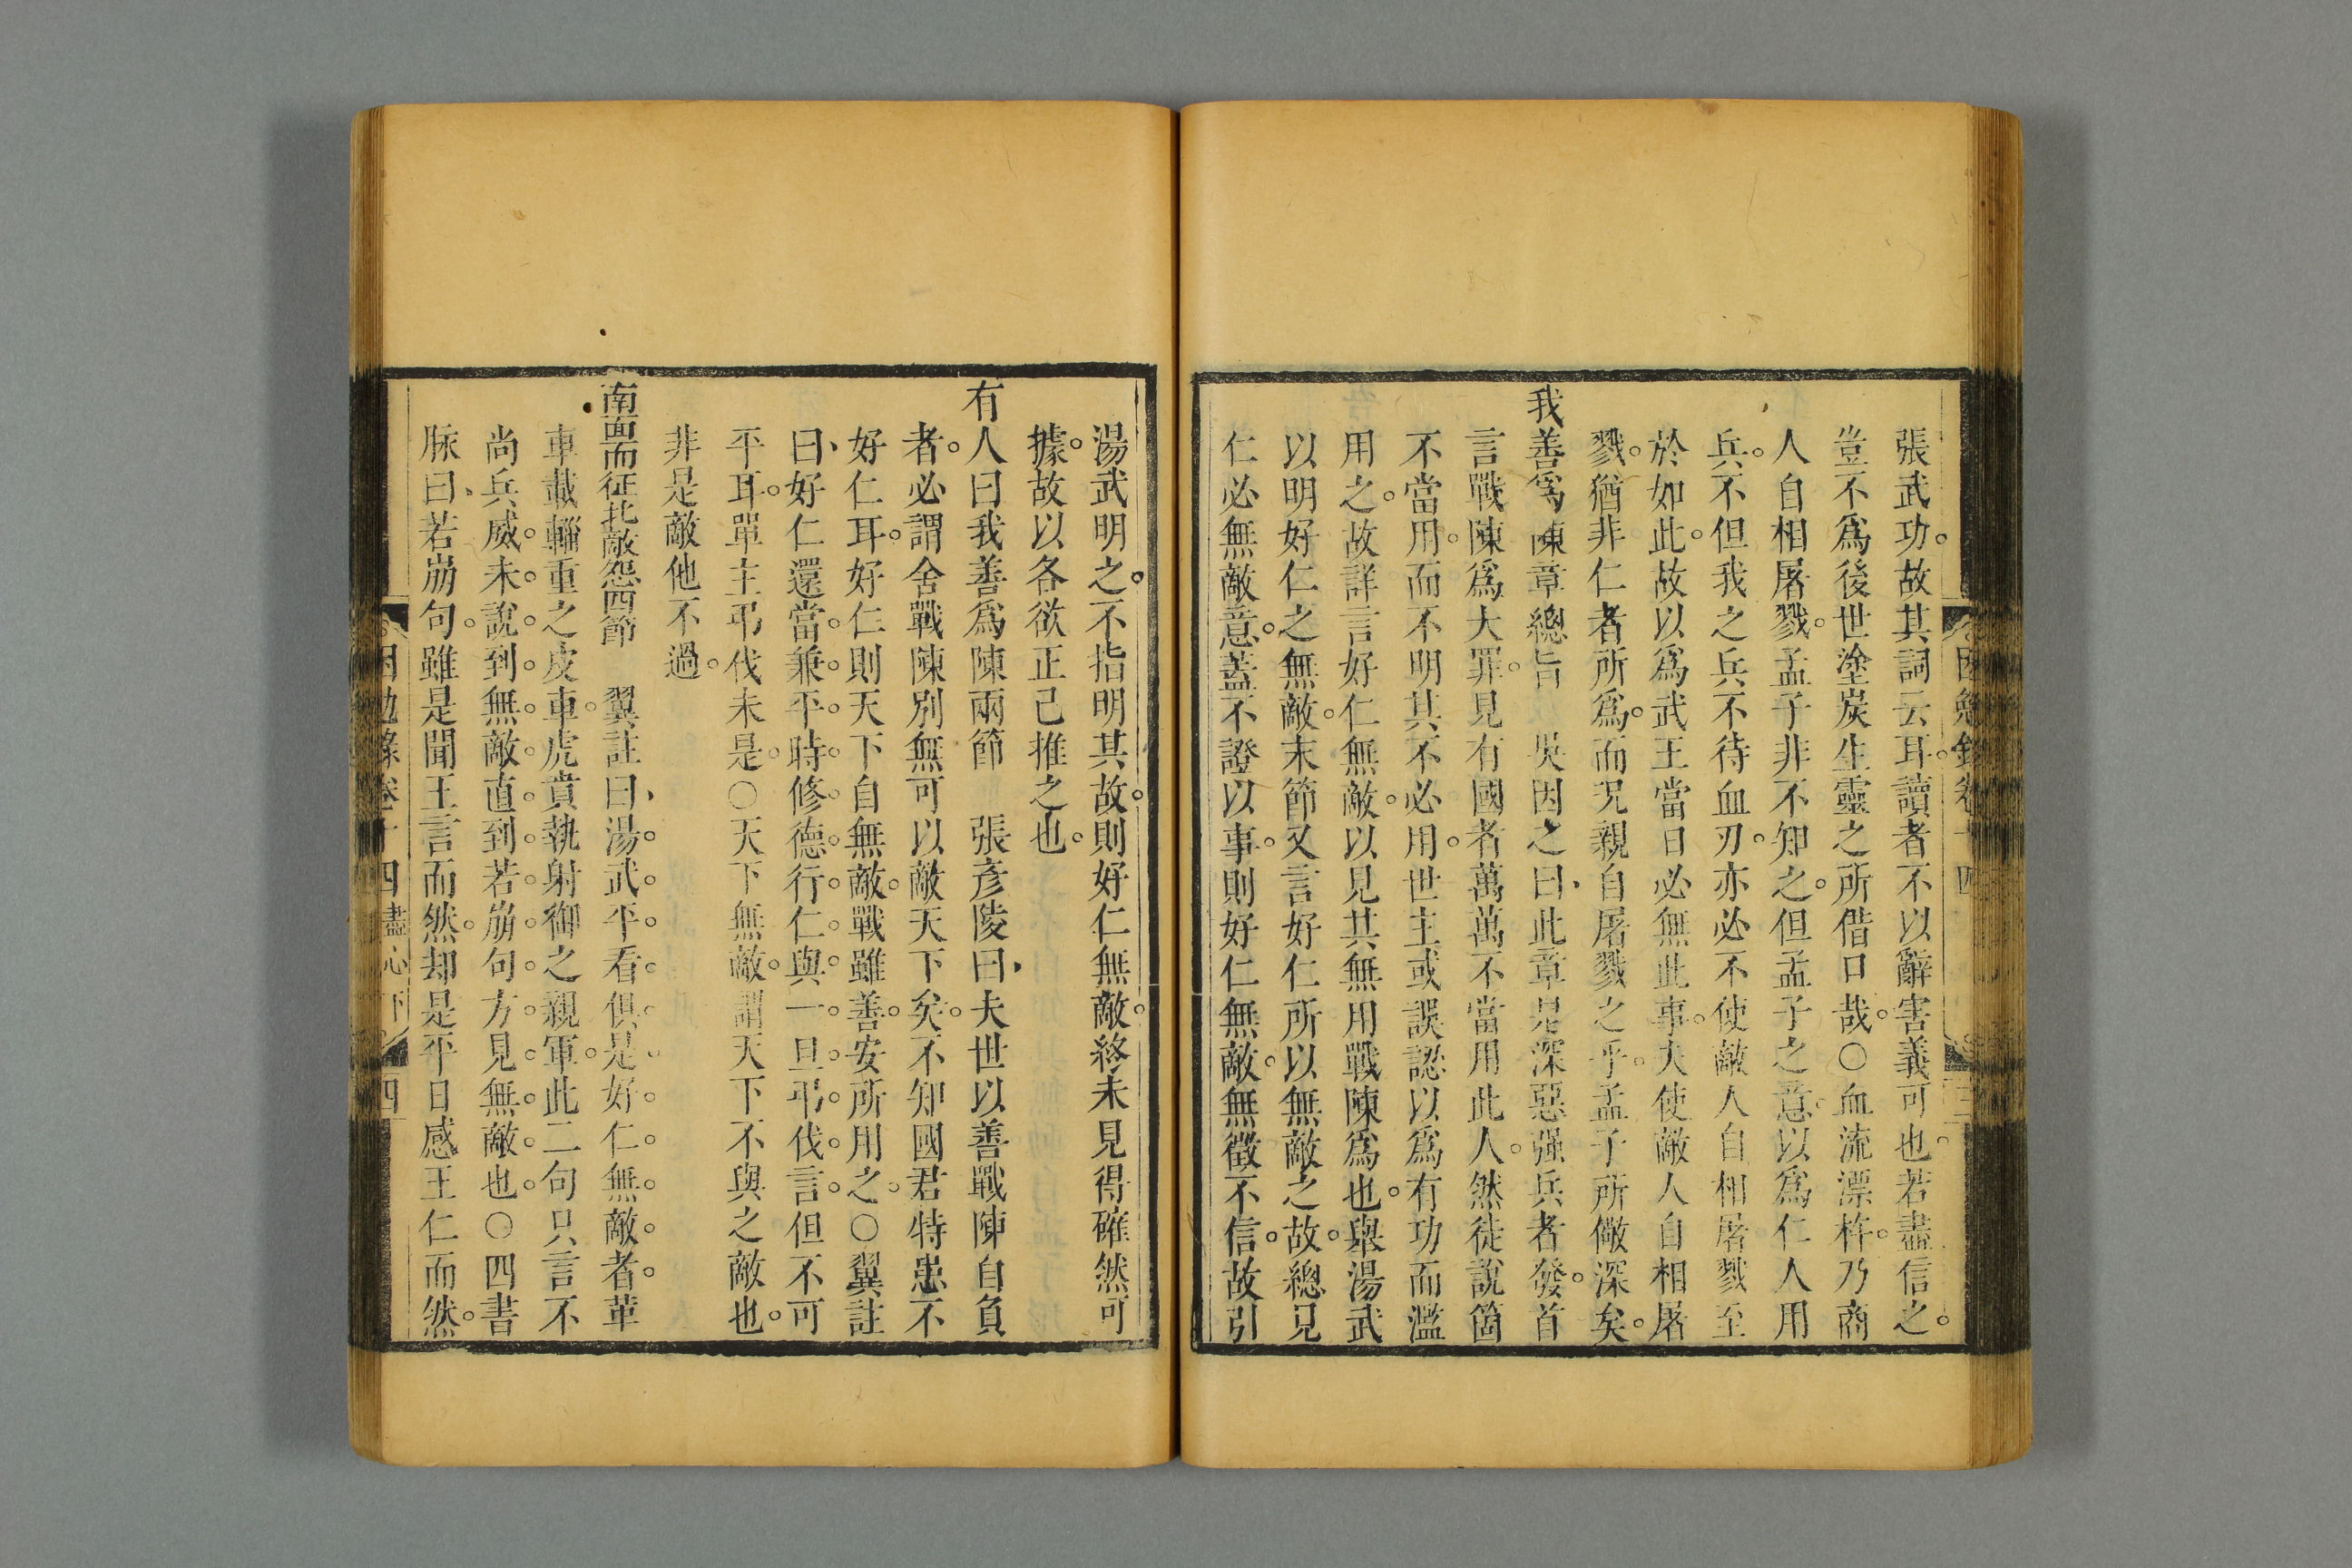 張武功故其詞云耳讀者不以辭害義可也若盡信之
豈不爲後世塗炭生靈之所借口哉○血流漂杵乃商
人自相屠戮孟子非不知之但孟子之意以爲仁人用
兵不但我之兵不待血刃亦必不使敵人自相屠戮至
於如此故以爲武王當日必無此事夫使敵人自相屠
戮猶非仁者所爲而况親自屠戮之乎孟子所儆深矣
我善爲陳章總旨 吳因之曰此章是深惡强兵者發首
言戰陳爲大罪見有國者萬萬不當用此人然徒說箇
不當用而不明其不必用世主或誤認以爲有功而濫
用之故詳言好仁無敵以見其無用戰陳爲也舉湯武
以明好仁之無敵末節又言好仁所以無敵之故總見
仁必無敵意蓋不證以事則好仁無敵無徵不信故引
湯武明之不指明其故則好仁無敵終未見得確然可
據故以各欲正己推之也
有人曰我善爲陳兩節 張彥陵曰夫世以善戰陳自負
者必謂舍戰陳別無可以敵天下矣不知國君特患不
好仁耳好仁則天下自無敵戰雖善安所用之○翼註
曰好仁還當兼平時修德行仁與一旦弔伐言但不可
平耳單主弔伐未是○天下無敵謂天下不與之敵也
非是敵他不過
南面而征北敵怨四節 翼註曰湯武平看俱是好仁無敵者革
車載輜重之皮車虎賁執射御之親軍此二句只言不
尚兵威未說到無敵直到若崩句方見無敵也○四書
脉曰若崩句雖是聞王言而然却是平日感王仁而然
困勉錄卷十四 盡心下 四